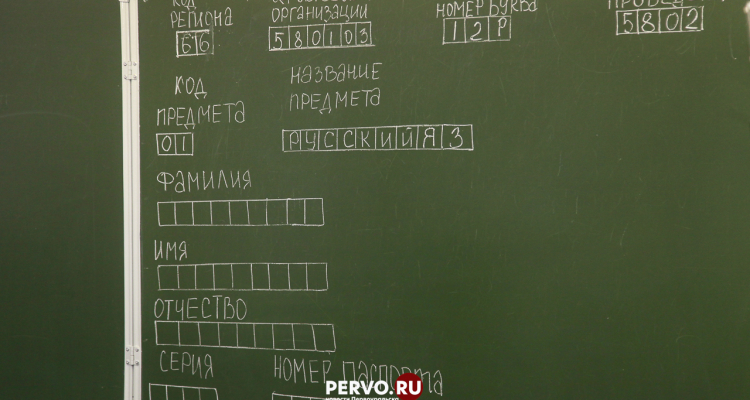 КОД
РЕГИОНА
ОРГАНИЗАЦИИ
НОМЕР БУКВА
66
580103
12Р
5802
КОД
ПРЕДМЕТА
НАЗВАНИЕ
ПРЕДМЕТА
01
РУССКИЙЯЗ
ФАМИЛИЯ
ИМЯ
ОТЧЕСТВО
СЕРИЯ
НОМЕР ПАСПОРТА
PERVO.RU
новости Первоуральска